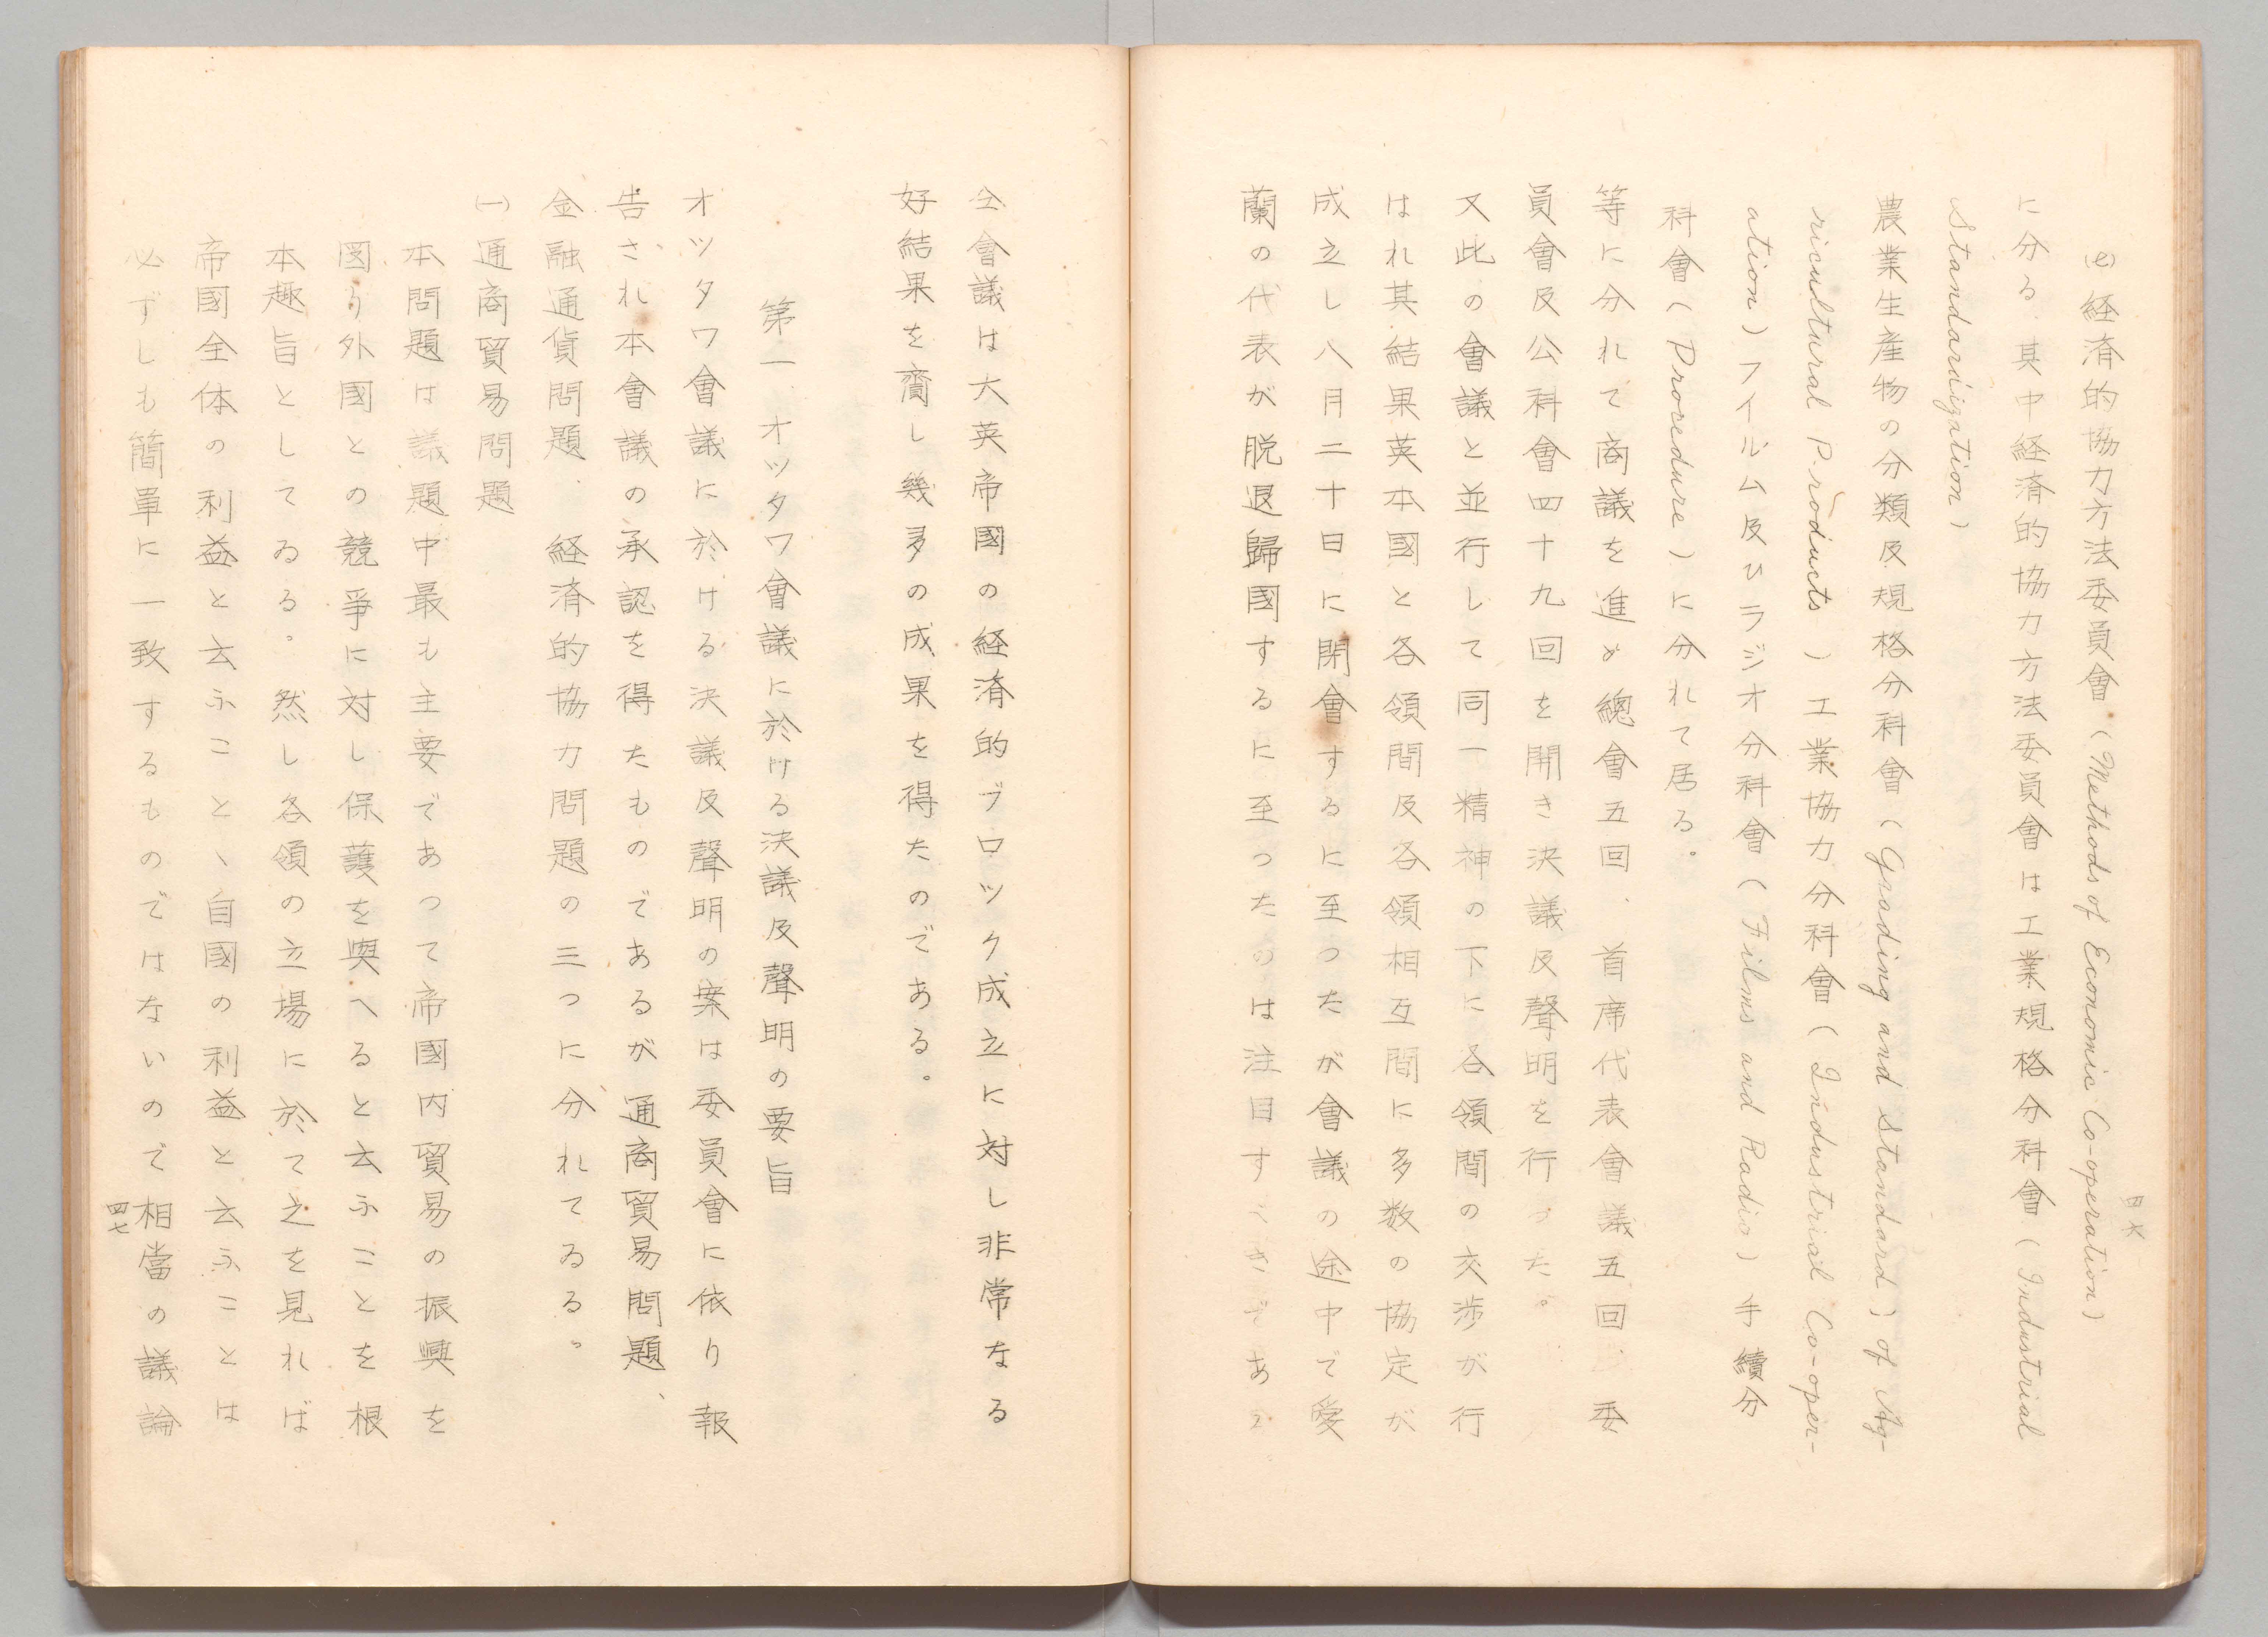 (e) 経済的協力方法委員會(Methods of Economic Co-operation)
に分る.其中経済的協力方法委員會は工業規格分科會(Industrial
Standardization)
農業生産物の分類及規格分科會(Grading and Standard) of Ag-
ricultural Products)工業協力分科會(Industrial Co-oper-
ation)フイルム及ひラジオ分科會(Films and Radio)手續分
科會(Procedure)に分れて居る。
等に分れて商議を進め總會五回、首席代表會議五回、委
員會及公科會四十九回を開き決議及聲明を行つた。
又此の會議と並行して同一精神の下に各領間の交渉が行
はれ其結果英本國と各領間及各領相互間に多数の協定が
成立し八月二十日に閉會するに至つたが會議の途中で愛
蘭の代表が脱退歸國するに至つたのは注目すべきであつ
四六
仝會議は大英帝國の経済的ブロツク成立に対し非常なる
好結果を齎し幾多の成果を得たのである。
第一、オツタワ會議に於ける決議及聲明の要旨
オツタワ會議に於ける決議及聲明の案は委員會に依り報
告され本會議の承認を得たものであるが通商貿易問題、
金融通貨問題、経済的協力問題の三つに分れてゐる。
(一)通商貿易問題
本問題は議題中最も主要であつて帝國内貿易の振興を
図り外國との競爭に対し保護を與へると云ふことを根
本趣旨としてゐる。然し各領の立場に於て之を見れば
帝國全体の利益と云ふことゝ自國の利益と云ふことは
必ずしも簡單に一致するものではないので相當の議論
四七